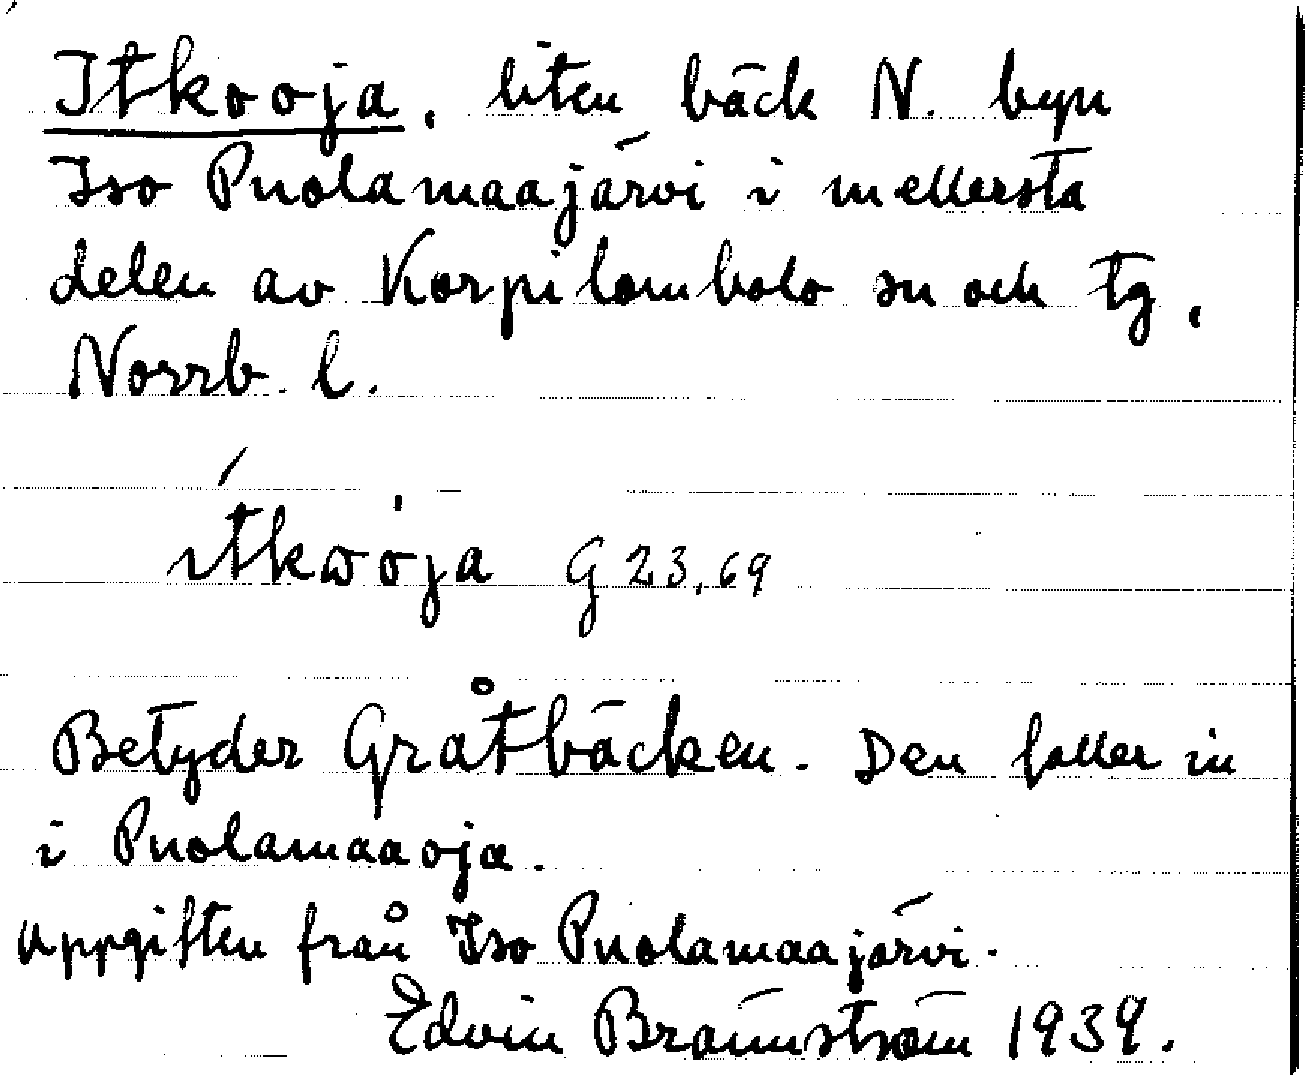 Itkooja, liten bäck N. byn
Iso Puolamaajärvi i mellersta
delen av Korpilombolo sn och tg,
Norrb. l.
ítkωòja G 23,69
Betyder Gråtbäcken. Den faller in
i Puolamaaoja.
Uppgiften från Iso Puolamaajärvi.
Edvin Brännström 1939.